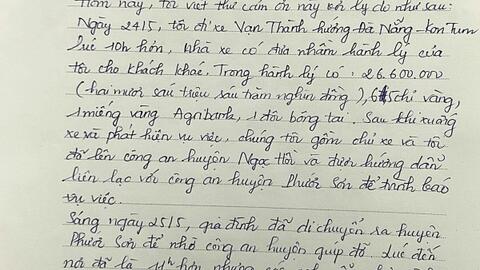 Hôm nay, tôi viết thư cảm ơn này với lý do như sau:
Ngày 24/5, tôi đi xe Vạn Thành hướng Đà Nẵng - Kon Tum
lúc 10h hơn, Nhà xe có đưa nhầm hành lý của
tôi cho khách khác. Trong hành lý có: 26.600.000
(hai mươi sáu triệu sáu trăm nghìn đồng), 6 chỉ vàng,
1 miếng vàng Agribank, 1 đôi bông tai. Sau khi xuống
xe và phát hiện vụ việc, chúng tôi gồm chủ xe và tôi
đã lên công an huyện Ngọc Hồi và được hướng dẫn
liên lạc với công an huyện Phước Sơn để trình báo
vụ việc.
Sáng ngày 25/5, gia đình đã di chuyển ra huyện
Phước Sơn để nhờ công an huyện giúp đỡ. Lúc đến
nơi đã là 11h hơn nhưng